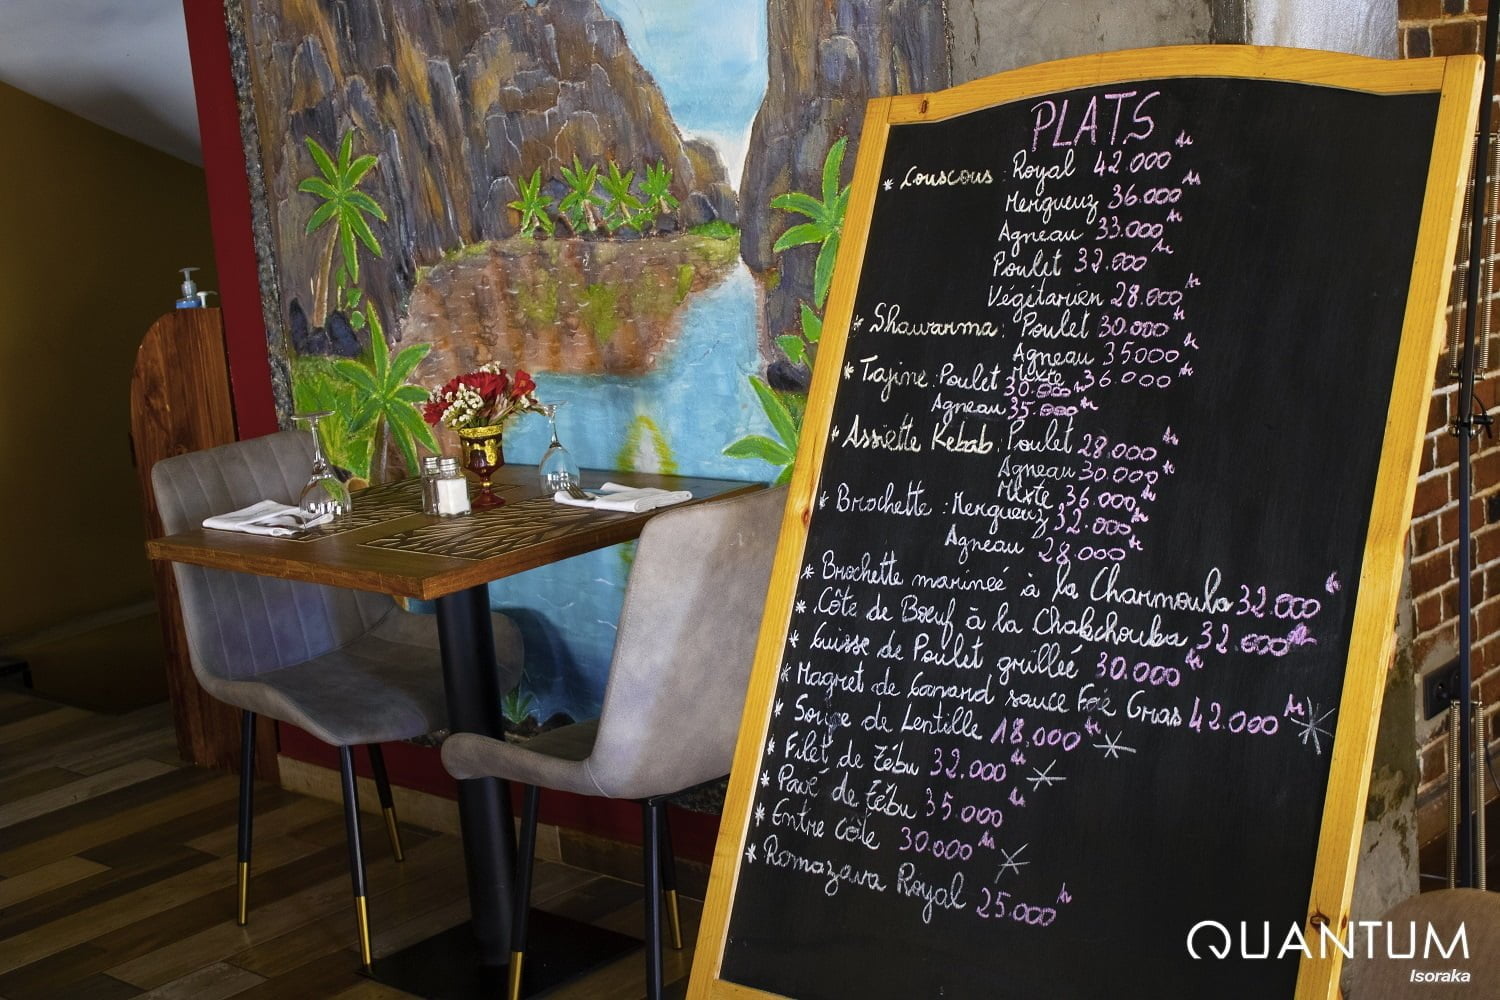 PLATS
* Couscous : Royal 42.000 Ar
Merguez 36.000 Ar
Agneau 33.000 Ar
Poulet 32.000 Ar
Végétarien 28.000 Ar
* Shawarma : Poulet 30.000 Ar
Agneau 35000 Ar
Mixte 36.000 Ar
* Tajine : Poulet 30.000 Ar
Agneau 35.000 Ar
* Assiette Kebab : Poulet 28.000 Ar
Agneau 30.000 Ar
Mixte 36.000 Ar
* Brochette : Merguez 32.000 Ar
Agneau 28.000 Ar
* Brochette marineé à la Charmoula 32.000 Ar
* Côte de Bœuf à la Chakchouka 32.000 Ar
* Cuisse de Poulet grilleé 30.000 Ar
* Magret de Canard sauce Foie Gras 42.000 Ar *
* Soupe de Lentille 18.000 Ar *
* Filet de Zébu 32.000 Ar *
* Pavé de Zébu 35.000 Ar
* Entre Côte 30.000 Ar *
* Romazava Royal 25.000 Ar
QUANTUM
Isoraka